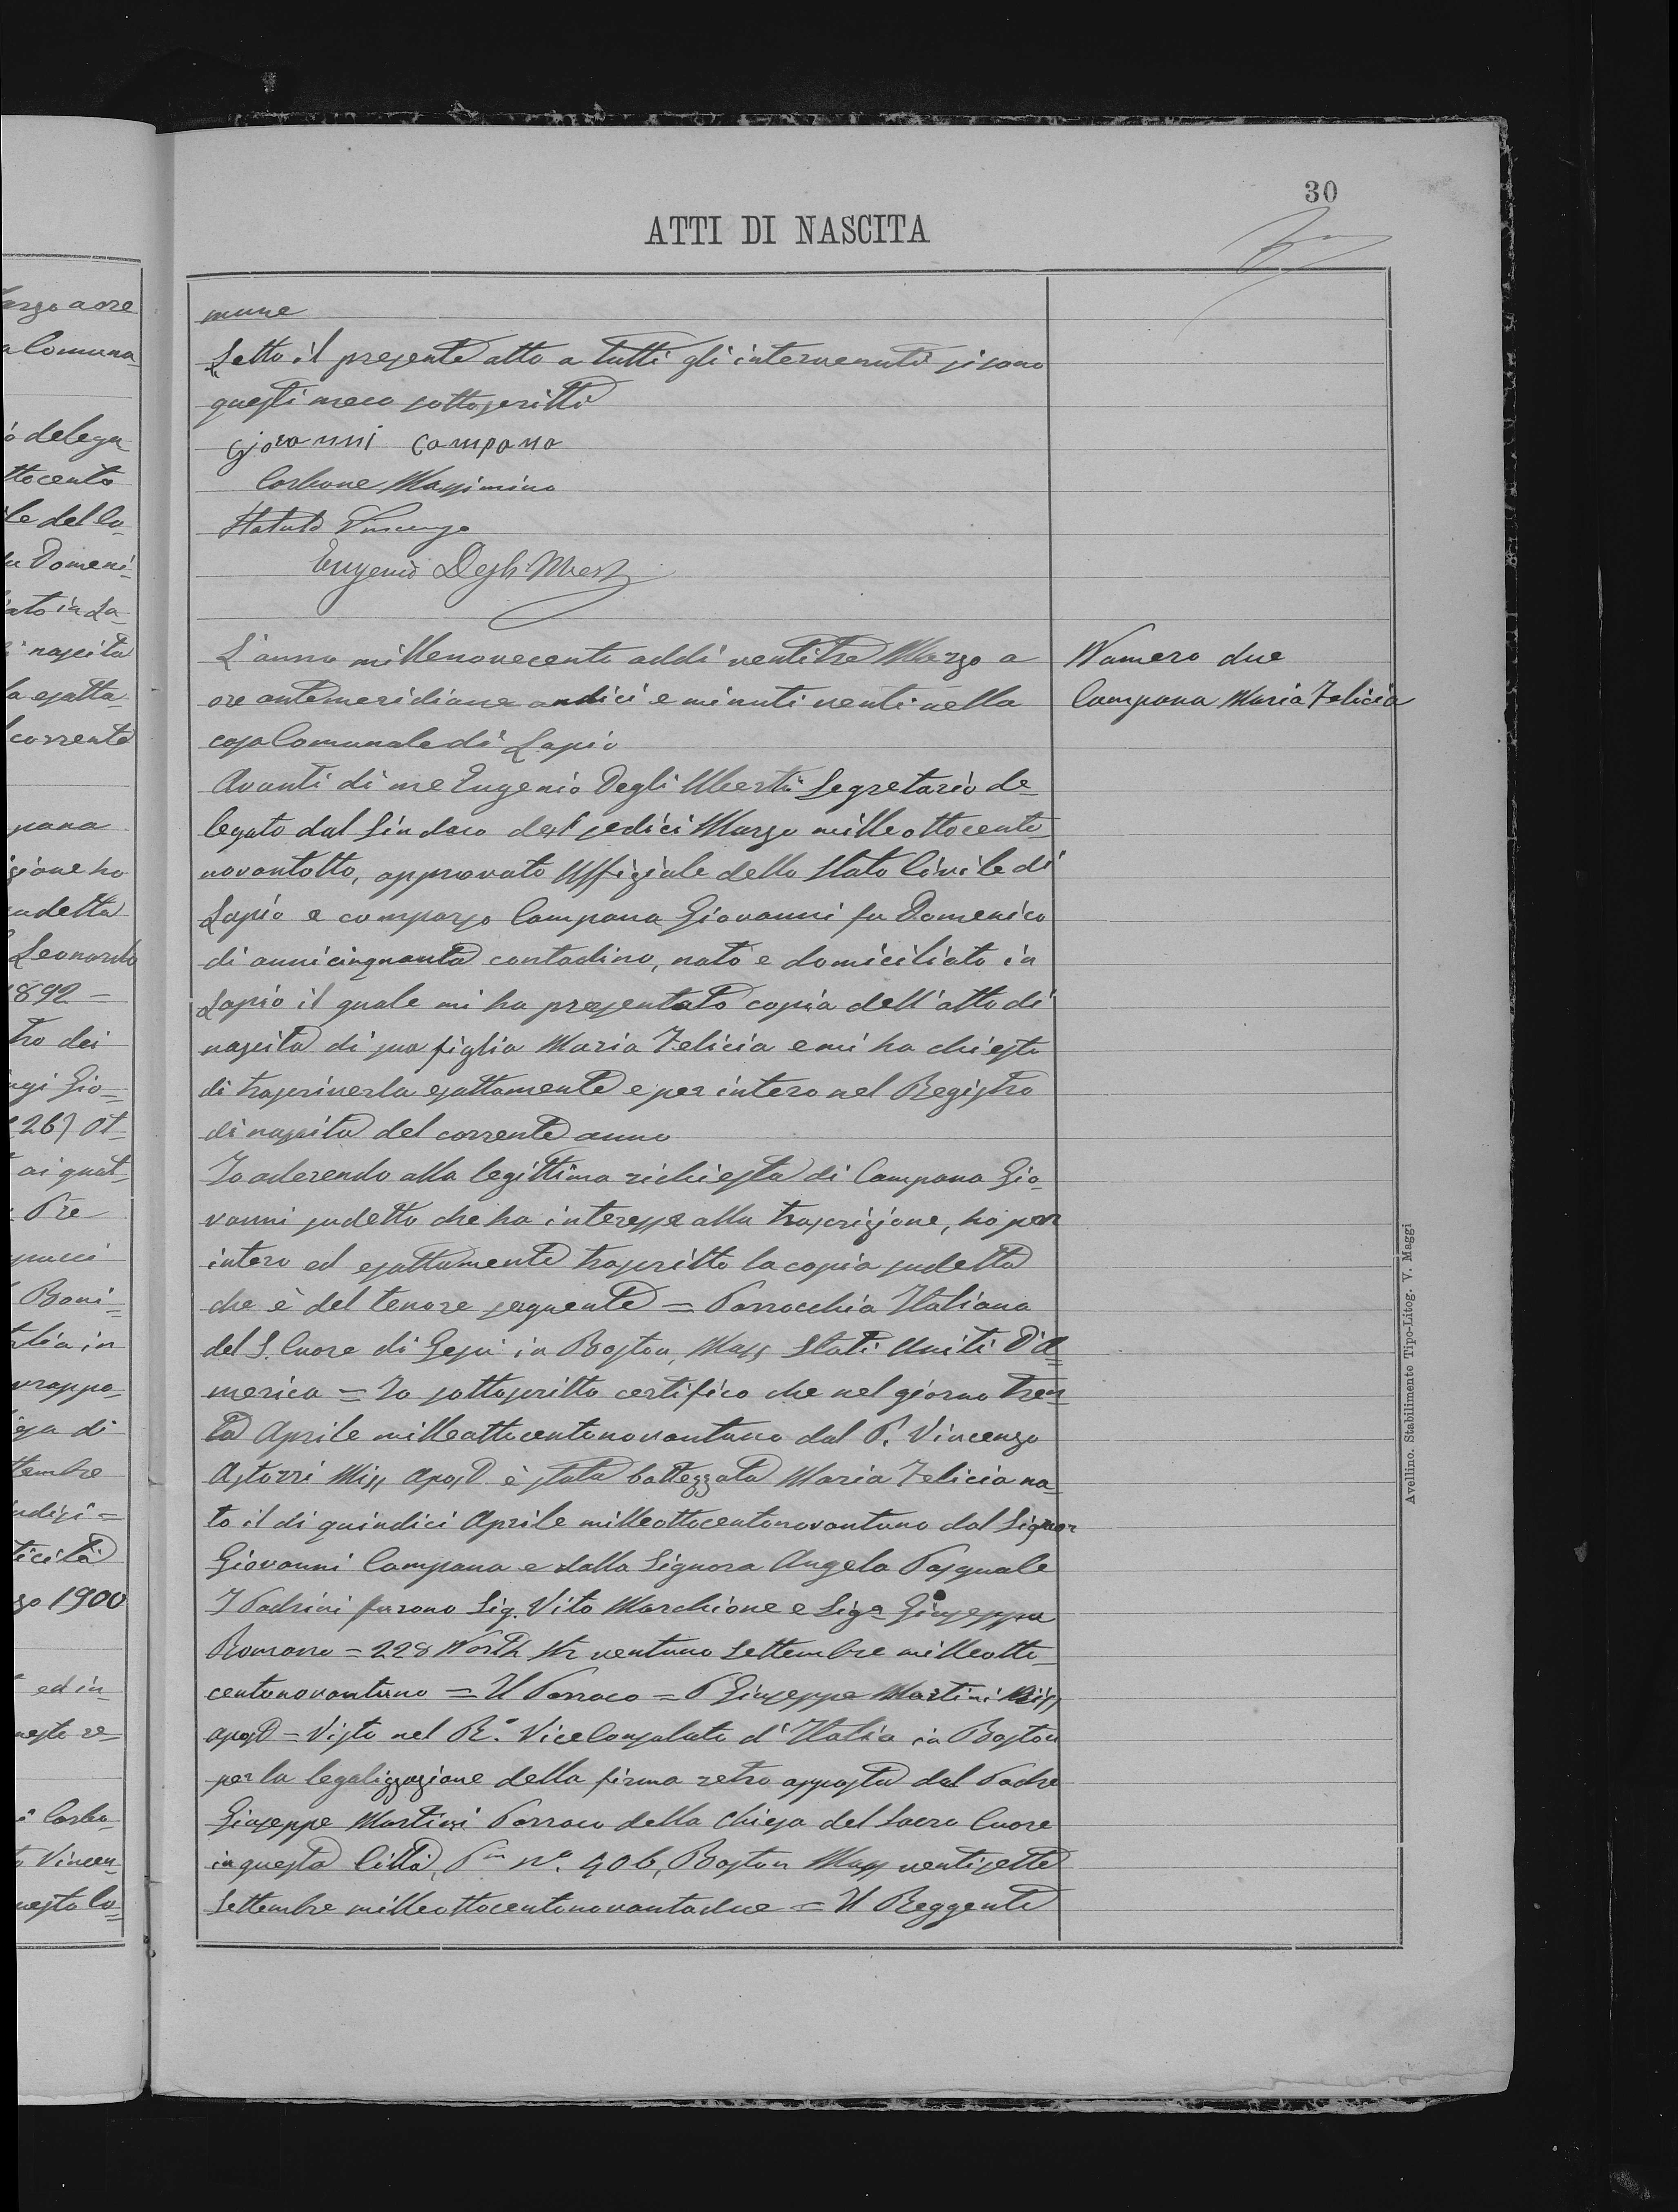 30
ATTI DI NASCITA
mune
Letto il presente atto a tutti gli intervenuti si sono
questi meco sottoscritti
Giovanni Campana
Carbone Massimino
Statuto Vincenzo
Eugenio Degli Uberti
L'anno millenovecento addi ventitre Marzo a
ore antemeridiane undici e minuti venti nella
casa Comunale di Lapio
Numero due
Campana Maria Felicia
Avanti di me Eugenio Degli Uberti Segretario de-
legato dal Sindaco del sedici Marzo milleottocento
novantotto, approvato Uffiziale dello Stato Civile di
Lapio è comparso Campana Giovanni fu Domenico
di anni cinquanta contadino, nato e domiciliato in
Lapio il quale mi ha presentato copia dell'atto di
nascita di sua figlia Maria Felicia e mi ha chiesto
di trascriverla esattamente e per intero nel Registro
di nascita del corrente anno
Io aderendo alla legittima richiesta di Campana Gio-
vanni sudetto che ha interesse alla trascrizione, ho per
intero ed esattamente trascritto la copia sudetta
che è del tenore seguente = Parrocchia Italiana
del S. Cuore di Gesù in Boston, Mass Stati Uniti D'A=
merica = Io sottoscritto certifico che nel giorno tren-
ta Aprile milleottocentonovantuno dal P. Vincenzo
Astorri Miss Apost è stata battezzata Maria Felicia na-
to il di quindici Aprile milleottocentonovantuno dal Signor
Giovanni Campana e dalla Signora Angela Pasquale
I Padrini furono Sig. Vito Marchione e Sig.a Giuseppa
Romano = 228 North Str ventuno Settembre milleotto-
centonovantuno = Il Parroco = P Giuseppe Martini Miss
apost = Visto nel R.o Vice Consolato d'Italia in Boston
per la legalizzazione della firma retro apposta dal Padre
Giuseppe Martini Parroco della Chiesa del Sacro Cuore
in questa Città, n.o 406, Boston Mass ventisette
Settembre milleottocentonovantadue = Il Reggente
Avellino. Stabilimento Tipo-Litog. V. Maggi